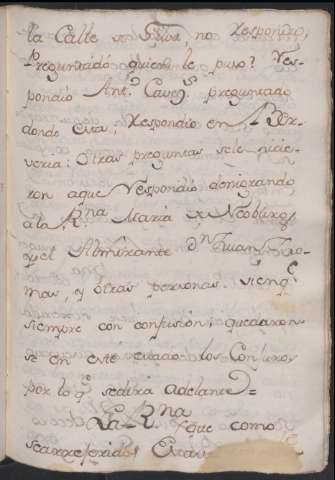 la Calle de Silva no Respondio,
Preguntado quien le puso? Res-
pondio Ant.º preguntado
donde esta; Respondio en
Otras preguntas sele hicie-
ron aque Respondio denigrando
ala R.na Maria
y el Almirante D.n Juan Tho-
mas, y otras personas
siempre con confusión; quedaron
se en este estado los Conjuros
por lo q.e sedira adelante =
La R.na
que como